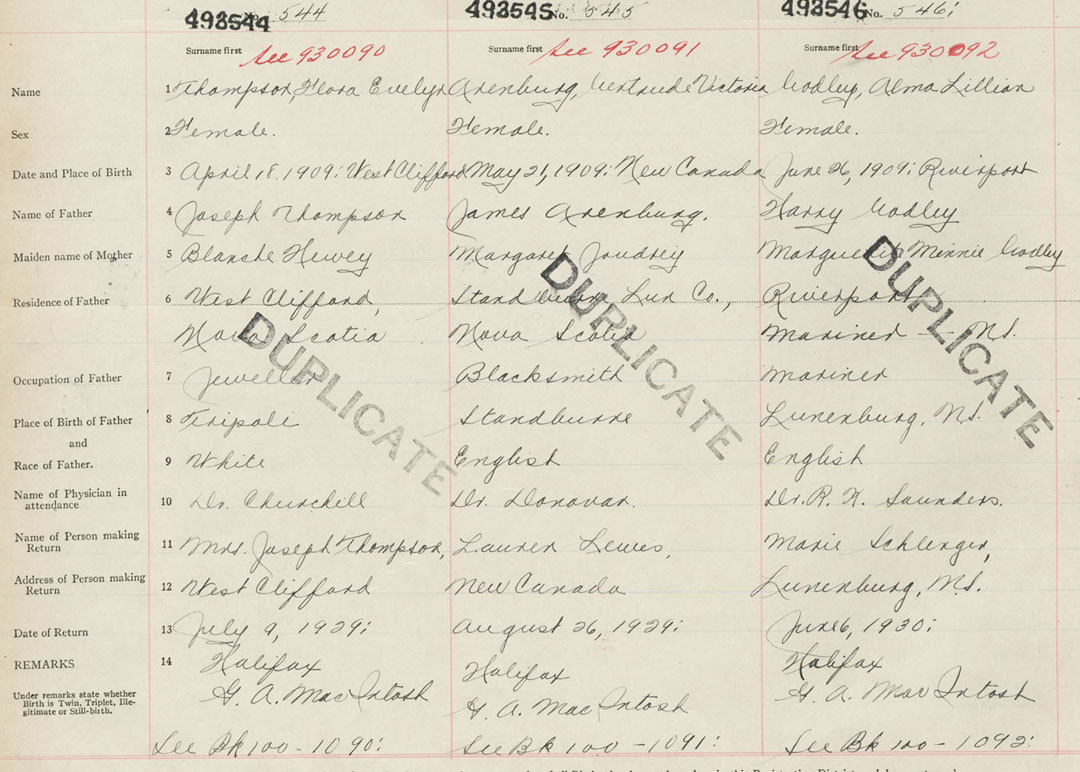 493544 544 493545 No. 545 493546 No. 546;
Surname first See 930090 Surname first See 930091 Surname first See 930092
Name 1 Thompson, Flora Evelyn Arenburg, Gertrude Victoria Godley, Alma Lillian
Sex 2 Female. Female. Female.
Date and Place of Birth 3 April 18, 1909: West Clifford May 21, 1909: New Canada June 26, 1909: Riverport
Name of Father 4 Joseph Thompson James Arenburg. Harry Godley
Maiden name of Mother 5 Blanche Hewey Margaret Joudrey Minnie Godley
Residence of Father 6 West Clifford, Lun Co., Riverport
Nova Scotia Nova Scotia Mariner - NS.
Occupation of Father 7 Jeweller Blacksmith Mariner
Place of Birth of Father 8 Tripoli Standburne Lunenburg, NS.
and
Race of Father. 9 White English English
Name of Physician in attendance 10 Dr. Churchill Dr. Donovan. Dr. R. K. Saunders.
Name of Person making Return 11 Mrs. Joseph Thompson, Lauren Lewis, Marie Schlenger,
Address of Person making Return 12 West Clifford New Canada Lunenburg, NS.
Date of Return 13 July 9, 1929: August 26, 1929: June 6, 1930:
REMARKS 14 Halifax Halifax Halifax
Under remarks state whether Birth is Twin, Triplet, Illegitimate or Still-birth. G. A. MacIntosh G. A. MacIntosh G. A. MacIntosh
See Bk 100 - 1090: See Bk 100 - 1091: See Bk 100 - 1092:
DUPLICATE DUPLICATE DUPLICATE